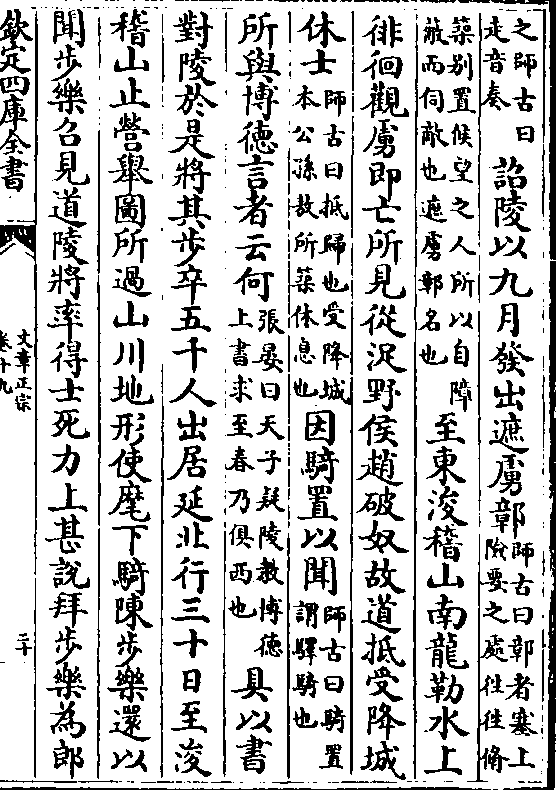 之師古曰
走音奏
詔陵以九月發出遮虜鄣
師古曰鄣者塞上
險要之處往往脩
築别置候望之人所以自障
蔽而伺敵也遮虜鄣名也
至東浚稽山南龍勒水上
徘徊觀虜即亡所見從浞野侯趙破奴故道抵受降城
休士
師古曰抵歸也受降城
本公孫敖所築休息也
因騎置以聞
師古曰騎置
謂驛騎也
所與博德言者云何
張晏曰天子疑陵教博德
上書求至春乃俱西也
具以書
對陵於是將其步卒五千人出居延北行三十日至浚
稽山止營舉圖所過山川地形使麾下騎陳步樂還以
聞步樂召見道陵將率得士死力上甚説拜步樂為郎
欽定四庫全書
文章正宗
卷十九
二十